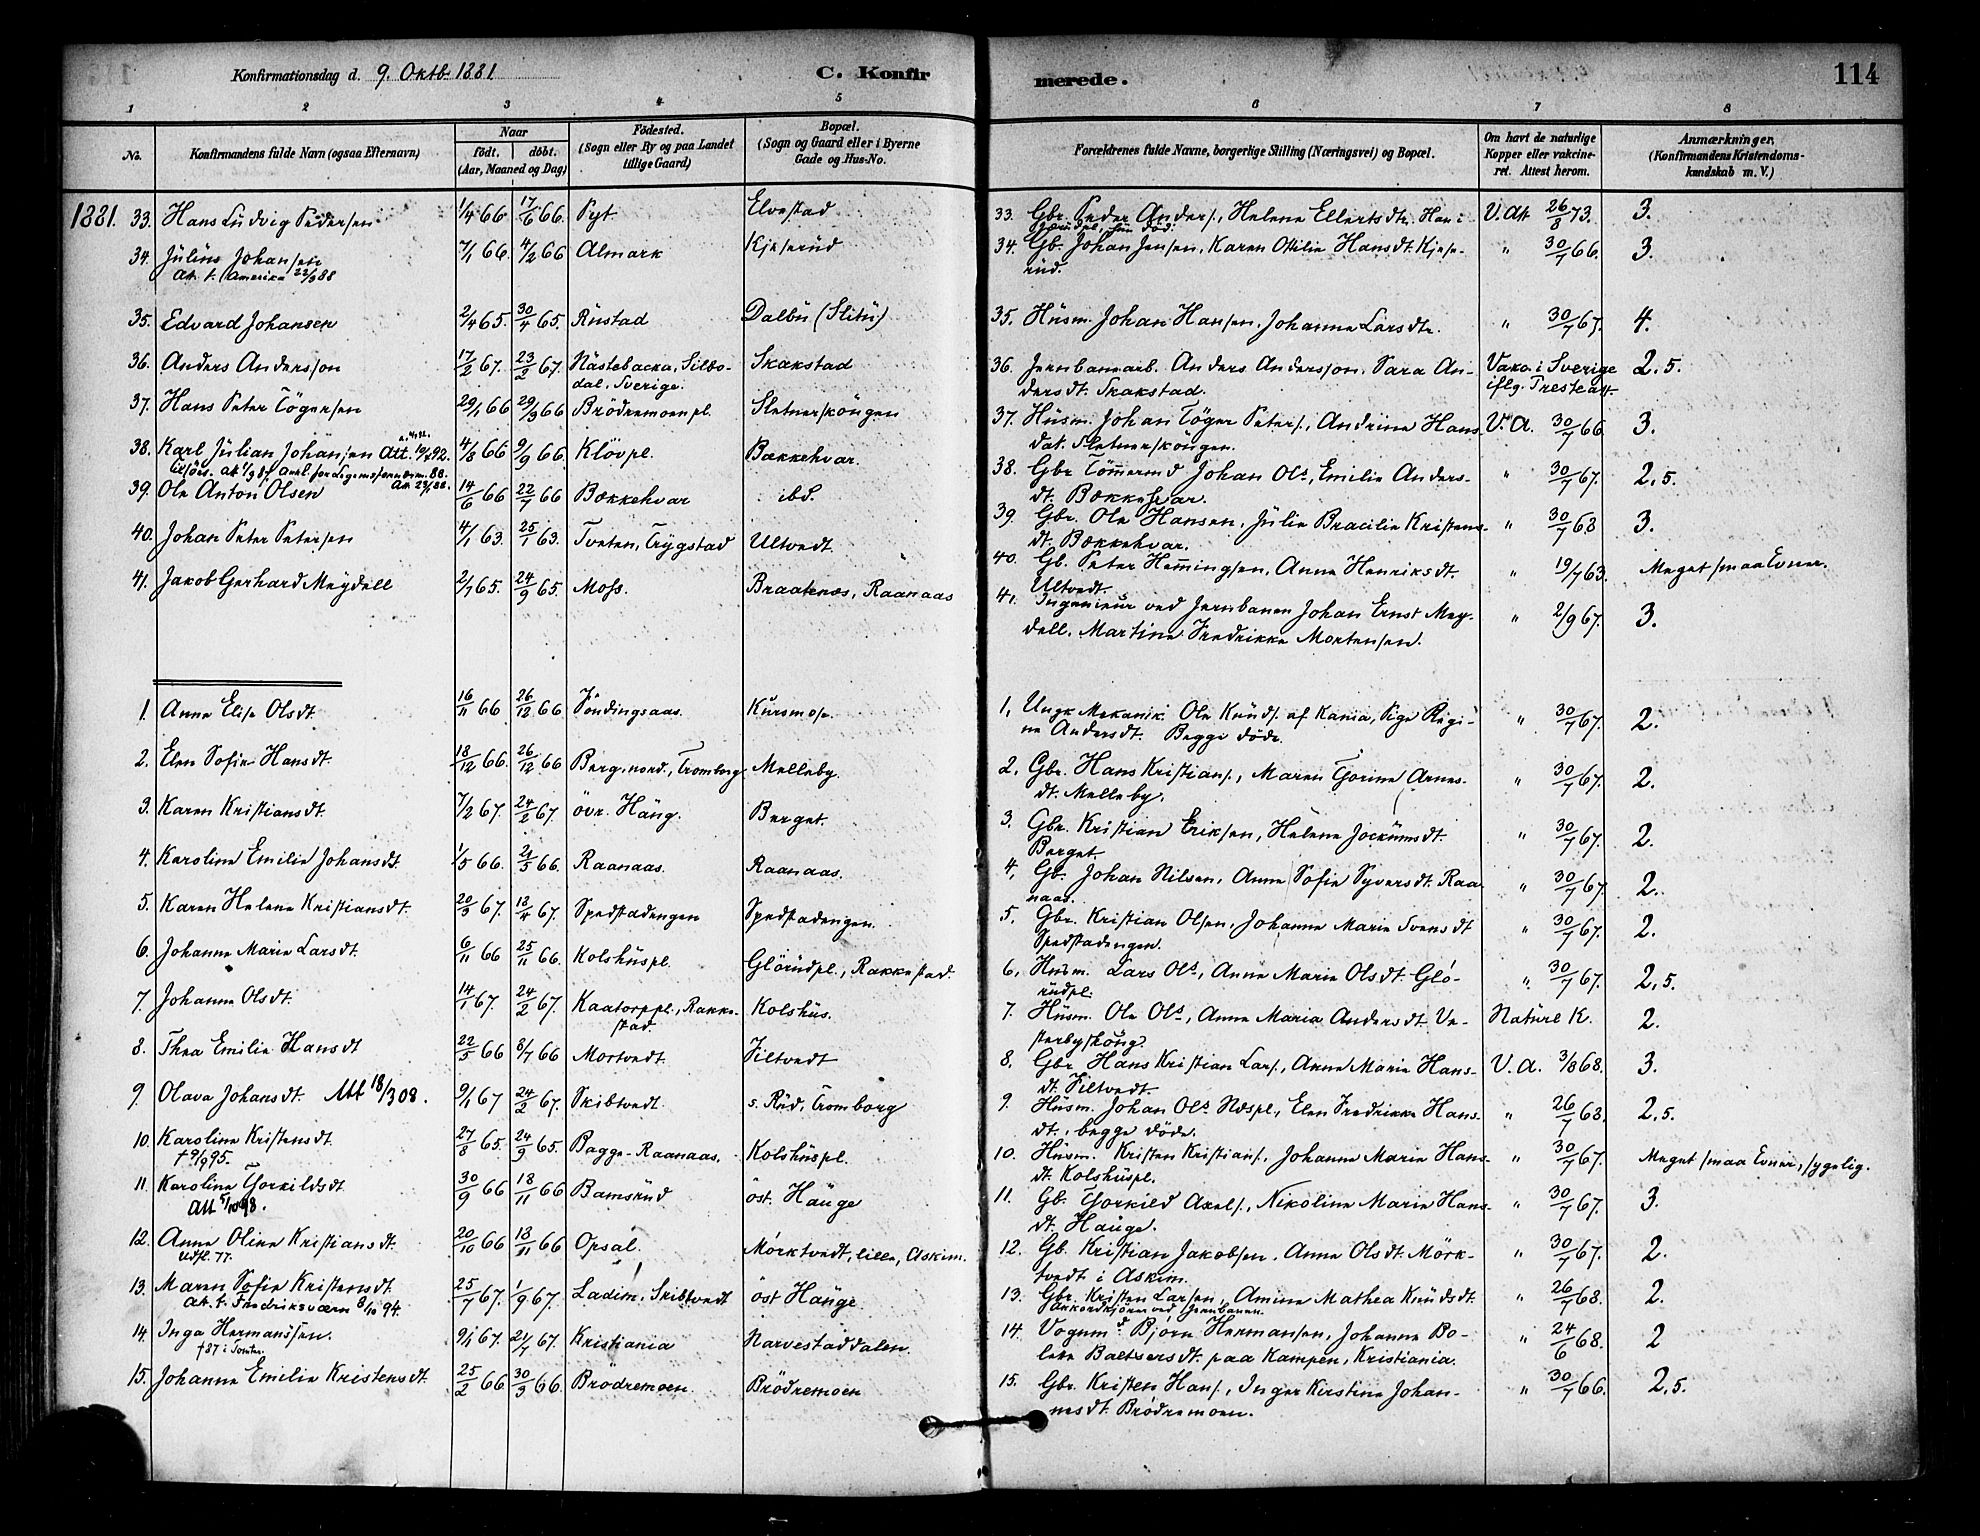 Konfirmationsdag d. 9. Oktb. 1881
C. Konfirmerede.
114
1 2 3 4 5 6 7 8
No.
Konfirmandens fulde Navn (ogsaa Efternavn)
Naar
födt. döbt.
(Aar, Maaned og Dag)
Födested.
(Sogn eller By og paa Landet
tillige Gaard)
Bopæl.
(Sogn og Gaard eller i Byerne
Gade og Hus-No.
Forældrenes fulde Navne, borgerlige Stilling (Næringsvei) og Bopæl.
Om havt de naturlige
Kopper eller vakcine-
ret. Attest herom.
Anmærkninger,
(Konfirmandens Kristendoms-
kundskab m. V.)
1881. 33. Hans Ludvig Pedersen 1/4 66 17/6 66. Pyt Elvestad
34. Julius Johansen 7/1 66. 4/2 66 Almark Kjeserud
Att. t. Amerika 22/3 88
35. Edvard Johansen 2/4 65. 30/4 65. Rustad Dalbu (Slitu)
36. Anders Andersson 17/2 67. 23/2 67. Nästebacka, Silbo- Skakstad
dal, Sverige.
37. Hans Peter Tögersen 29/1 66 29/3 66 Brödremoen pl. Sletnerskougen
38. Karl Julian Johansen Att. 19/4 92. 4/8 66 9/9 66. Klövpl. Bækkehvar.
39. Ole Anton Olsen 14/6 66 22/7 66 Bækkehvar ibd.
40. Johan Peter Petersen 4/1 63. 25/1 63. Tveten, Trygstad Ultvedt.
41. Jakob Gerhard Meydell 2/7 65. 24/9 65. Moss. Braatenæs, Raanaas
1. Anna Elise Olsdt. 16/11 66 26/12 66 Söndingsaas. Kursmose.
2. Elen Sofie Hansdt. 18/12 66. 26/12 66 Berg, nord., Tromborg Melleby.
3. Karen Kristiansdt. 7/2 67. 24/2 67 övr. Haug. Berget.
4. Karoline Emilie Johansdt. 1/5 66. 21/5 66. Raanaas. Raanaas.
5. Karen Helene Kristiansdt. 20/3 67. 18/4 67. Spedstadengen Spedstadengen.
6. Johanne Marie Larsdt. 6/11 66 25/11 66. Kolshuspl. Glörudpl., Rakkestad.
7. Johanne Olsdt. 14/1 67. 24/2 67. Kaatorppl., Rakke- Kolshus.
stad.
8. Thea Emilie Hansdt 22/5 66 8/7 66 Mortvedt. Filtvedt
9. Olava Johansdt. Att 18/3 08. 9/1 67 24/2 67. Skibtvedt. s. Rud, Tromborg
10. Karoline Kristensdt. 27/8 65. 24/9 65. Bagge-Raanaas. Kolshuspl.
† 9/9 95.
11. Karoline Torkildsdt 30/9 66 18/11 66 Bamsrud öst. Hauge
Att 5/10 98.
12. Anna Oline Kristiansdt. 20/10 66 18/11 66 Opsal. Mörktvedt, lille, Askim.
Udfl. 77.
13. Maren Sofie Kristensdt. 25/7 67. 1/9 67. Ladim. Skibtvedt öst Hauge.
Att. t. Fredriksværn 8/10 94.
14. Inga Hermanssen. 9/1 67. 21/7 67. Kristiania Narvestaddalen.
† 87 i Tomter.
15. Johanne Emilie Kristensdt. 25/2 66 30/3 66. Brödremoen. Brödremoen
33. Gbr. Peder Anders., Helene Ellertsdtr. Han i V. Att 26/8 73. 3.
34. Gb. Johan Jensen, Karen Ottilie Hansdt. Kjese- " 30/7 66. 3.
rud.
35. Husm. Johan Hansen, Johanne Larsdtr. " 30/7 67. 4.
36. Jernbanearb. Anders Andersson, Sara An- Vakc. i Sverige 2,5.
dersdt. Skakstad. iflg. Presteatt.
37. Husm. Johan Töger Peters., Andrine Hans- V. A. 30/7 66. 3.
dat. Sletnerskougen.
38. Gbr. Tömmermd Johan Ols., Emilie Anders- " 30/7 67. 2,5.
dt. Bækkehvar.
39. Gbr. Ole Hansen, Julie Bracilie Kristens- " 30/7 68 3.
dt. Bækkehvar.
40. Gb. Peter Hemmingsen, Anne Henriksdt. " 19/7 63. Meget smaa Evner.
Ultvedt.
41. Ingenieur ved Jernbanen Johan Ernst Mey- " 2/9 67. 3.
dell. Martine Fredrikke Mortensen.
1. Ungk. Mekanik. Ole Knuds. af Kania, Sige Regi- " 30/7 67. 2.
ne Andersdt. Begge döde.
2. Gbr. Hans Kristians., Maren Torine Arnes- " 30/7 67. 2.
dt. Melleby.
3. Gbr. Kristian Eriksen, Helene Jockumsdt " 30/7 67. 2.
Berget.
4. Gb. Johan Nilsen, Anne Sofie Syversdt. Raa- " 30/7 67. 2.
naas.
5. Gbr. Kristian Olsen, Johanne Marie Svensdt " 30/7 67. 2.
Spedstadengen.
6. Husm. Lars Ols., Anne Marie Olsdt. Glö- " 30/7 67. 2,5.
rudpl.
7. Husm. Ole Ols., Anne Maria Andersdt. Ve- Naturl K. 2.
sterbyskoug.
8. Gbr. Hans Kristian Lars., Anne Marie Hans- V. A. 3/8 68. 3.
dt. Filtvedt.
9. Husm. Johan Ols. Næspl., Elen Fredrikke Hans- " 26/7 68. 2,5.
dt., begge döde.
10. Husm. Kristen Kristians., Johanne Marie Hans- " 30/7 67. Meget smaa Evner, sygelig.
dt. Kolshuspl.
11. Gb. Torkild Axels., Nikoline Marie Hans- " 30/7 67. 3.
dt. Hauge.
12. Gb. Kristian Jakobsen. Anne Olsdt. Mörk- " 30/7 67. 2.
tvedt i Askim.
13. Gbr. Kristen Larsen, Amine Mathea Knudsdt. " 26/7 68. 2.
14. Vognmd. Björn Hermansen, Johanne Bo- " 24/6 68. 2
lette Baltsersdt. paa Kampen, Kristiania.
15. Gbr. Kristen Hans., Inger Kirstine Johan- " 30/7 66. 2,5.
nesdt. Brödremoen.